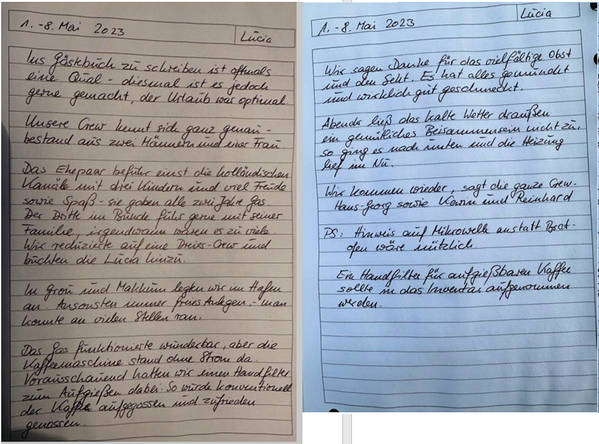 1.-8. Mai 2023
Lucia
Ins Gästebuch zu schreiben ist oftmals
eine Qual - diesmal ist es jedoch
gerne gemacht, der Urlaub war optimal.
Unsere Crew kennt sich ganz genau -
bestand aus zwei Männern und einer Frau
Das Ehepaar befuhr einst die holländischen
Kanäle mit drei Kindern und viel Freude
sowie Spaß - sie gaben alle zwei Jahre Gas.
Der Dritte im Bunde fuhr gerne mit seiner
Familie, irgendwann waren es zu viele
Wir reduzierte auf eine Dreier-Crew und
buchten die Lucia hinzu.
In Grou und Makkum legten wir im Hafen
an. Ansonsten immer freies Anlegen - man
konnte an vielen Stellen ran.
Das Gas funktionierte wunderbar, aber die
Kaffeemaschine stand ohne Strom da.
Vorausschauend hatten wir einen Handfilter
zum Aufgießen dabei. So wurde konventionell
der Kaffee aufgegossen und zufrieden
genossen.
1.-8. Mai 2023
Lucia
Wir sagen Danke für das vielfältige Obst
und den Sekt. Es hat alles gemundet
und wirklich gut geschmeckt.
Abends ließ das kalte Wetter draußen
ein gemütliches Beisammensein nicht zu,
so ging es nach unten und die Heizung
lief im Nu.
Wir kommen wieder, sagt die ganze Crew.
Hans-Georg sowie Karin und Reinhard
PS: Hinweis auf Mikrowelle anstatt Brat-
ofen wäre nützlich.
Ein Handfilter für aufgießbaren Kaffee
sollte in das Inventar aufgenommen
werden.